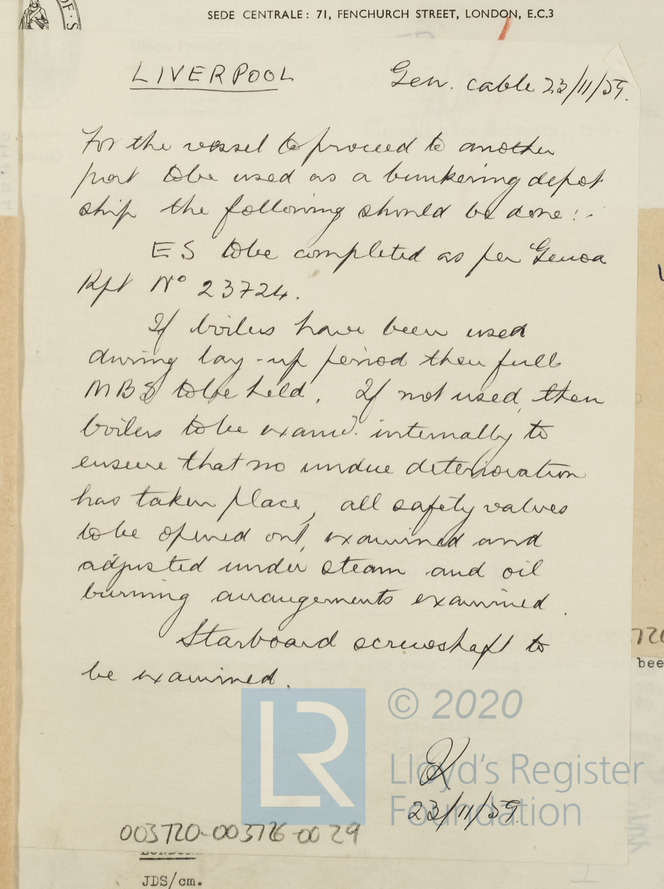 SEDE CENTRALE: 71, FENCHURCH STREET, LONDON, E.C.3
LIVERPOOL
Gen. cable 23/11/59.
For the vessel to proceed to another
port to be used as a bunkering depot
ship the following should be done:-
ES to be completed as per Genoa
Rpt No 23724.
If boilers have been used
during lay-up period then full
MBS to be held. If not used, then
boilers to be examd. internally to
ensure that no undue deterioration
has taken place, all safety valves
to be opened out, examined and
adjusted under steam and oil
burning arrangements examined.
Starboard screwshaft to
be examined.
23/11/59
© 2020
LR
Lloyd's Register
Foundation
003720-003726-0029
JDS/cm.
bee